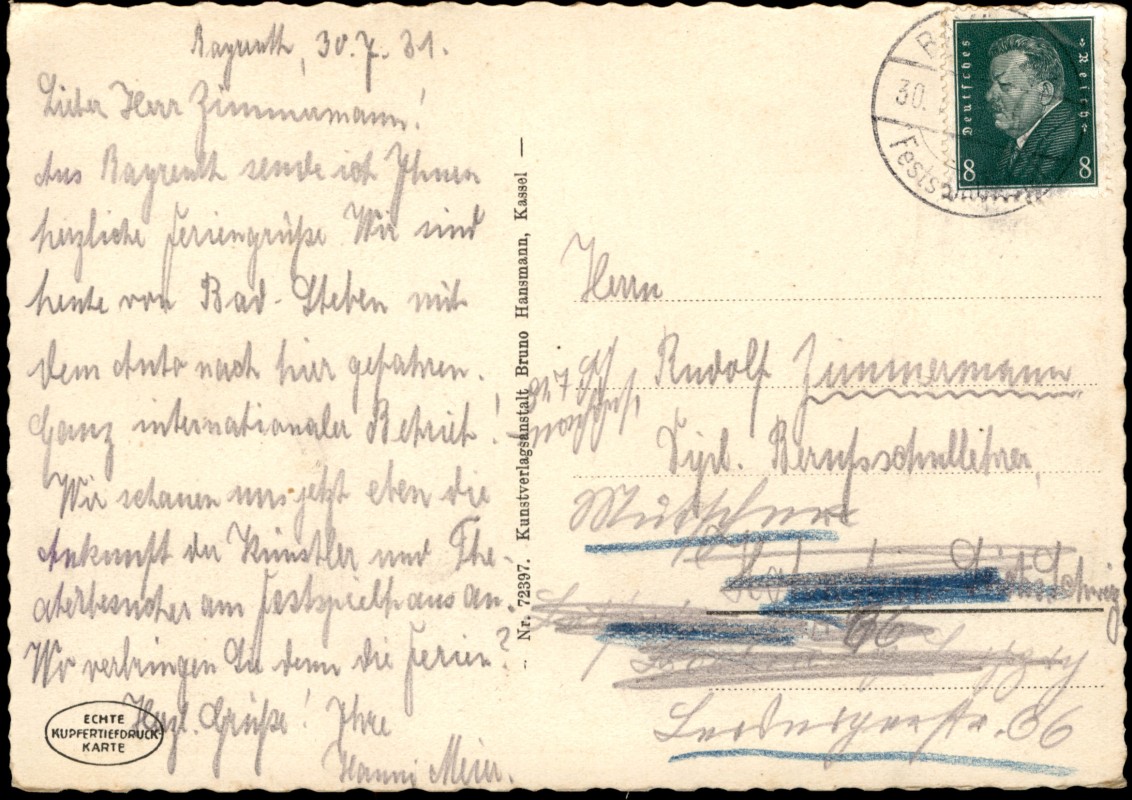 Bayreuth, 30.7.31.
Lieber Herr Zimmermann!
Aus Bayreuth sende ich Ihnen
herzliche Feriengrüße. Wir sind
heute von Bad-Steben mit
dem Auto nach hier gefahren.
Ganz internationaler Betrieb!
Wir schauen uns jetzt eben die
Ankunft der Künstler und The-
aterbesucher am Festspielhaus an.
Wo verbringen Sie denn die Ferien?
Herzl. Grüße! Ihre
Hanni Meier.
ECHTE
KUPFERTIEFDRUCK
KARTE
Nr. 72397. Kunstverlagsanstalt Bruno Hansmann, Kassel
Deutsches Reich
8 8
30.
Herrn
Rudolf Zimmermann
Dipl. Berufsschullehrer,
66